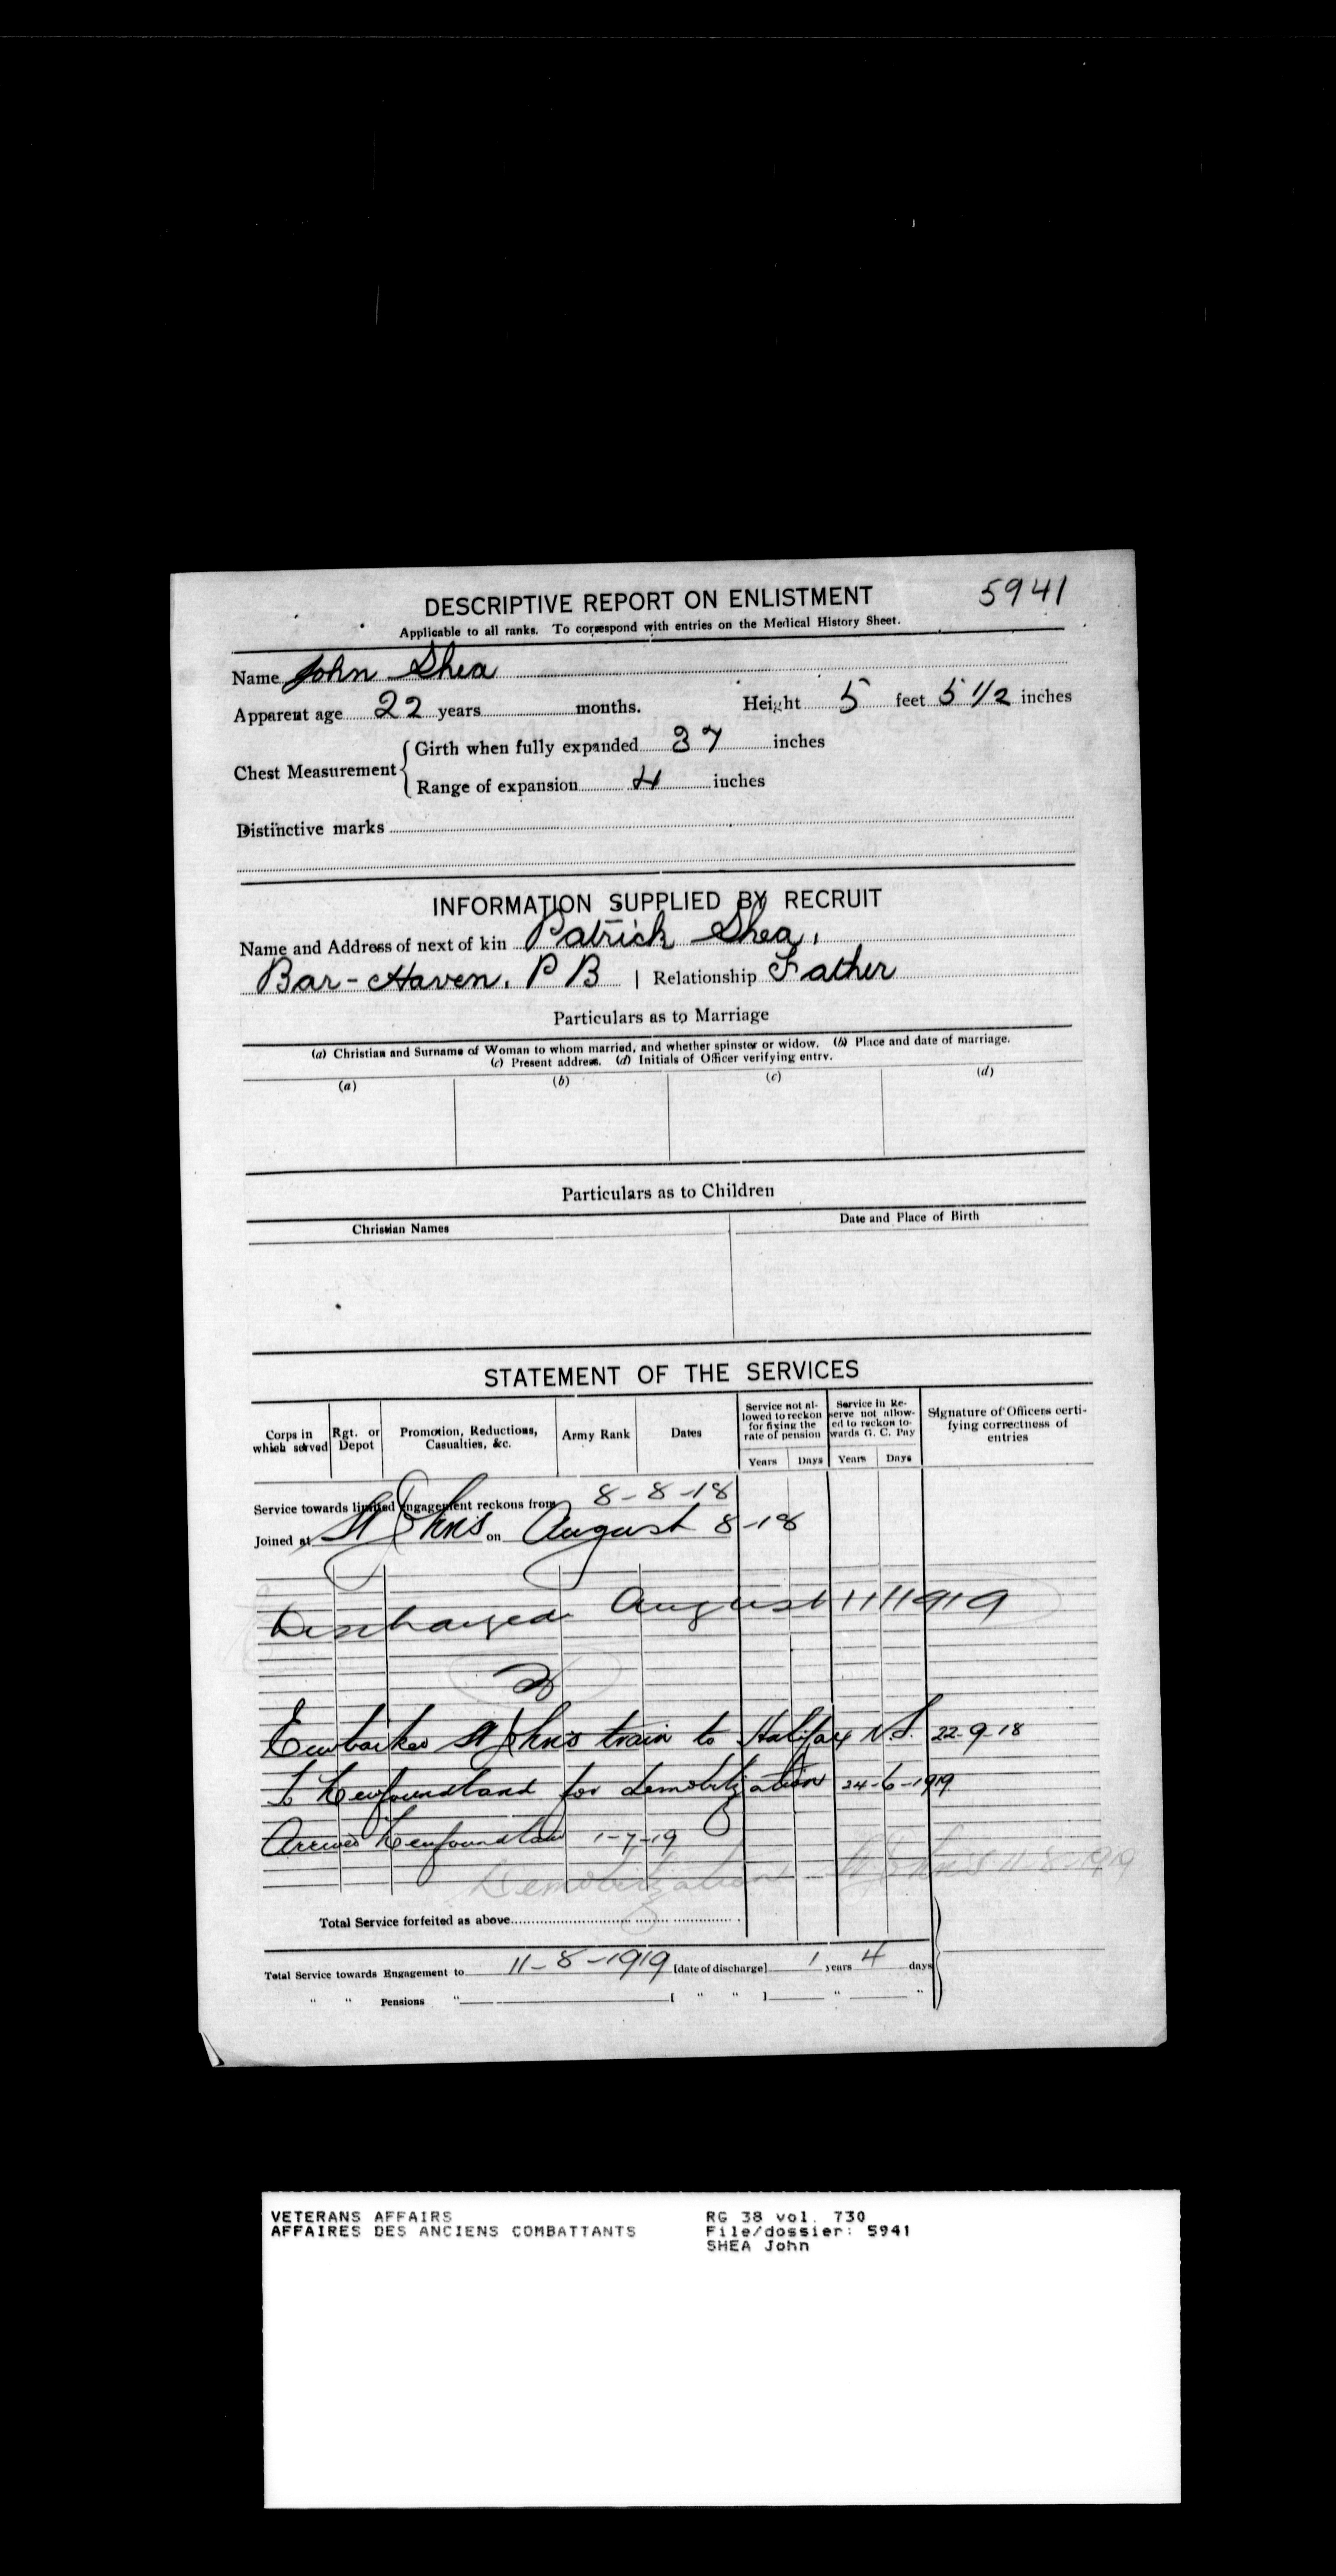 5941
DESCRIPTIVE REPORT ON ENLISTMENT
Applicable to all ranks. To correspond with entries on the Medical History Sheet.
Name John Shea
Apparent age 22 years months. Height 5 feet 5 1/2 inches
Chest Measurement { Girth when fully expanded 37 inches
Range of expansion 4 inches
Distinctive marks
INFORMATION SUPPLIED BY RECRUIT
Name and Address of next of kin Patrick Shea,
Bar-Haven, P B | Relationship Father
Particulars as to Marriage
(a) Christian and Surname of Woman to whom married, and whether spinster or widow. (b) Place and date of marriage.
(c) Present address. (d) Initials of Officer verifying entry.
(a) (b) (c) (d)
Particulars as to Children
Christian Names Date and Place of Birth
STATEMENT OF THE SERVICES
Corps in which served Rgt. or Depot Promotion, Reductions, Casualties, &c. Army Rank Dates Service not allowed to reckon for fixing the rate of pension Service in Reserve not allowed to reckon towards G. C. Pay Signature of Officers certifying correctness of entries
Years Days Years Days
Service towards limited engagement reckons from 8-8-18
Joined at St Johns on August 8-18
Discharged August 11 1919
Embarked St Johns train to Halifax N.S. 22-9-18
To Newfoundland for demobilization 24-6-1919
Arrived Newfoundland 1-7-19
Demobilization St Johns 11-8-1919
Total Service forfeited as above
Total Service towards Engagement to 11-8-1919 [date of discharge] 1 years 4 days
" " Pensions " [ " " ] " "
VETERANS AFFAIRS RG 38 vol. 730
AFFAIRES DES ANCIENS COMBATTANTS File/dossier: 5941
SHEA John